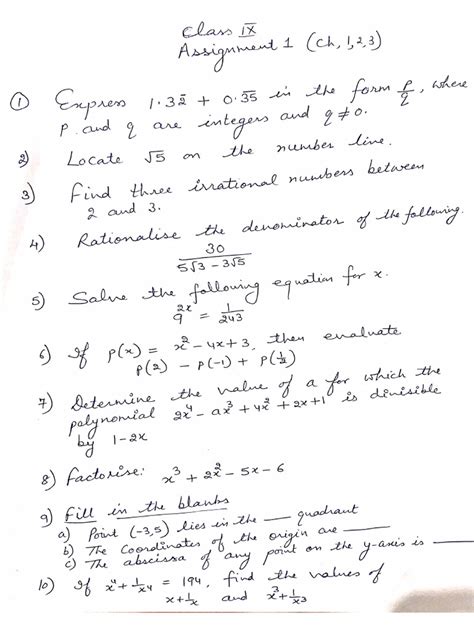 Class IX
Assignment 1 (Ch, 1,2,3)
① Express 1.32̄ + 0.3̅5̅ in the form p/q, where
p and q are integers and q≠0.
2) Locate √5 on the number line.
3) Find three irrational numbers between
2 and 3.
4) Rationalise the denominator of the following.
30
5√3 - 3√5
5) Solve the following equation for x.
9^2x = 1/243
6) If p(x) = x² - 4x + 3, then evaluate
p(2) - p(-1) + p(1/2)
7) Determine the value of a for which the
polynomial 2x⁴ - ax³ + 4x² + 2x + 1 is divisible
by 1-2x
8) Factorise: x³ + 2x² - 5x - 6
9) Fill in the blanks
a) Point (-3,5) lies in the ___ quadrant
b) The Coordinates of the origin are ___
c) The abscissa of any point on the y-axis is ___
10) If x⁴ + 1/x⁴ = 194, find the values of
x + 1/x and x³ + 1/x³